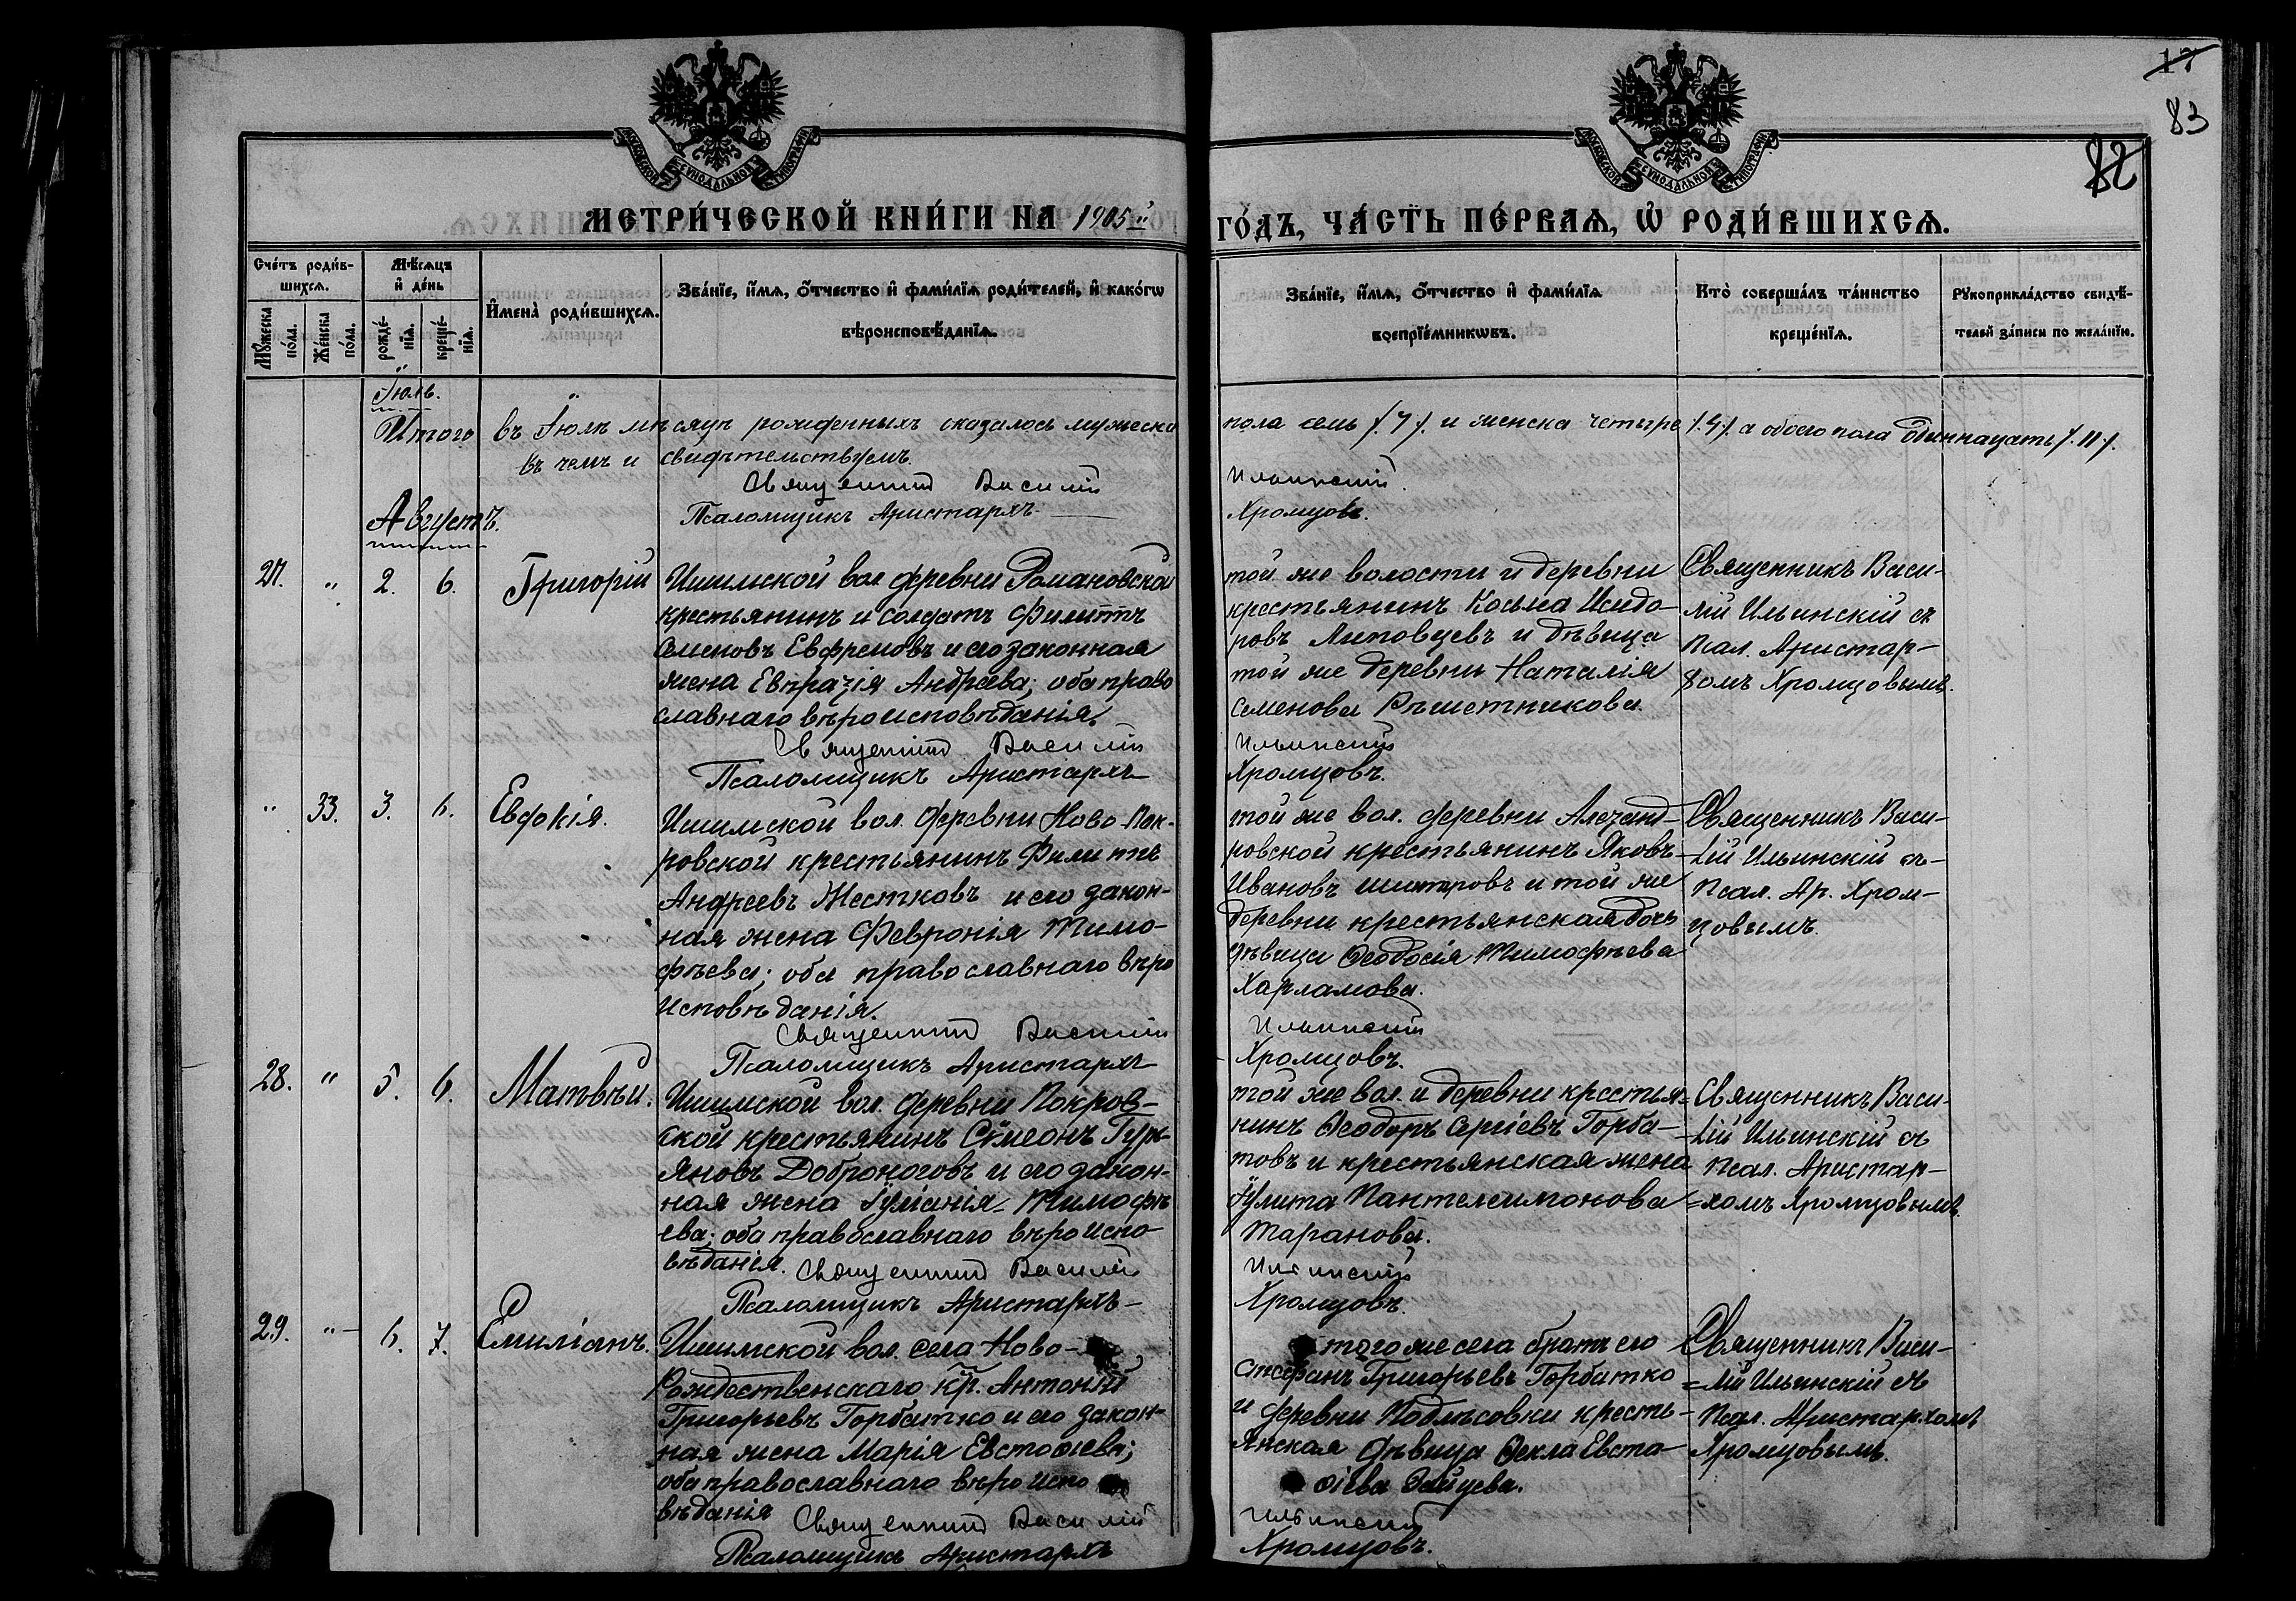 17
83
82
МОСКОВСКОЙ СѴНОДАЛЬНОЙ ТИПОГРАФІИ
МОСКОВСКОЙ СѴНОДАЛЬНОЙ ТИПОГРАФІИ
МЕТРИ́ЧЕСКОЙ КНИ́ГИ НА 1905й
ГО́ДЪ, ЧА́СТЬ ПЕ́РВАѦ, Ѡ҆ РОДИ́ВШИХСѦ.
Сче́тъ роди́в-
шихсѧ.
Мꙋ́жеска по́ла.
Же́нска по́ла.
Мѣ́сѧцъ и҆ де́нь
рожде́-нїѧ.
креще́-нїѧ.
И҆мена̀ роди́вшихсѧ.
Зва́нїе, и҆́мѧ, ѻ҆́тчество и҆ фами́лїѧ роди́телей, и҆ како́гѡ
вѣроисповѣ́данїѧ.
Зва́нїе, и҆́мѧ, ѻ҆́тчество и҆ фами́лїѧ
воспрїе́мникѡвъ.
Кто̀ соверша́лъ та́инство
креще́нїѧ.
Рꙋкоприкла́дство свидѣ́-
телей за́писи по жела́нїю.
Іюль.
Итого въ Іюлѣ мѣсяцѣ рожденныхъ оказалось мужеска
пола семь /.7/. и женска четыре /.4/. а обоего пола одиннацать /.11/.
въ чемъ и свидѣтельствуемъ.
Священникъ Василій
Ильинскій.
Псаломщикъ Аристархъ
Хромцовъ.
Августъ.
27. " 2. 6. Григорій
Ишимской вол деревни Романовской
крестьянинъ и солдатъ Филиппъ
Семеновъ Евфремовъ и его законная
жена Евпраѯія Андреева; оба право
славнаго вѣроисповѣданія.
Священникъ Василій
Псаломщикъ Аристархъ
той же волости и деревни
крестьянинъ Косьма Исидо-
ровъ Литовцевъ и дѣвица
той же деревни Наталія
Семенова Рѣшетникова.
Ильинскій
Хромцовъ.
Священникъ Васи-
лій Ильинскій съ
Псал. Аристар-
хомъ Хромцовымъ.
" 33. 3. 6. Евдокія.
Ишимской вол. деревни Ново-Пок-
ровской крестьянинъ Филиппъ
Андреевъ Жестковъ и его закон-
ная жена Февронія Тимо-
фѣева; оба православнаго вѣро
исповѣданія.
Священникъ Василій
Псаломщикъ Аристархъ
той же вол. деревни Алеѯанд-
ровской крестьянинъ Яковъ
Ивановъ и той же
деревни крестьянская дочь
дѣвица Ѳеодосія Тимофѣева
Харламова.
Ильинскій
Хромцовъ.
Священникъ Васи-
лій Ильинскій съ
Псал. Ар. Хром-
цовымъ.
28. " 5. 6. Матвѣй.
Ишимской вол. деревни Покров-
ской крестьянинъ Сѵмеонъ Гурь-
яновъ Доброноговъ и его закон-
ная жена Іуліанія Тимофѣ
ева; оба православнаго вѣроиспо-
вѣданія. Священникъ Василій
Псаломщикъ Аристархъ
той же вол. и деревни крестья-
нинъ Ѳеодоръ Сергіевъ Горба-
товъ и крестьянская жена
Іулита Пантелеимонова
Таранова.
Ильинскій
Хромцовъ.
Священникъ Васи-
лій Ильинскій съ
Псал. Аристар-
=хомъ Хромцовымъ.
29. " 6. 7. Емиліанъ.
Ишимской вол. села Ново-
Рождественскаго кр. Антоній
Григорьевъ Горбатко и его закон=
ная жена Марія Евстафіева;
оба православнаго вѣроиспо
вѣданія Священникъ Василій
Псаломщикъ Аристархъ
того же села братъ его
Стефанъ Григорьевъ Горбатко
и деревни Подлѣсовки кресть-
янская дѣвица Ѳекла Евста-
фіева Зайцева.
Ильинскій
Хромцовъ.
Священникъ Васи-
=лій Ильинскій съ
Псал. Аристархомъ
Хромцовымъ.